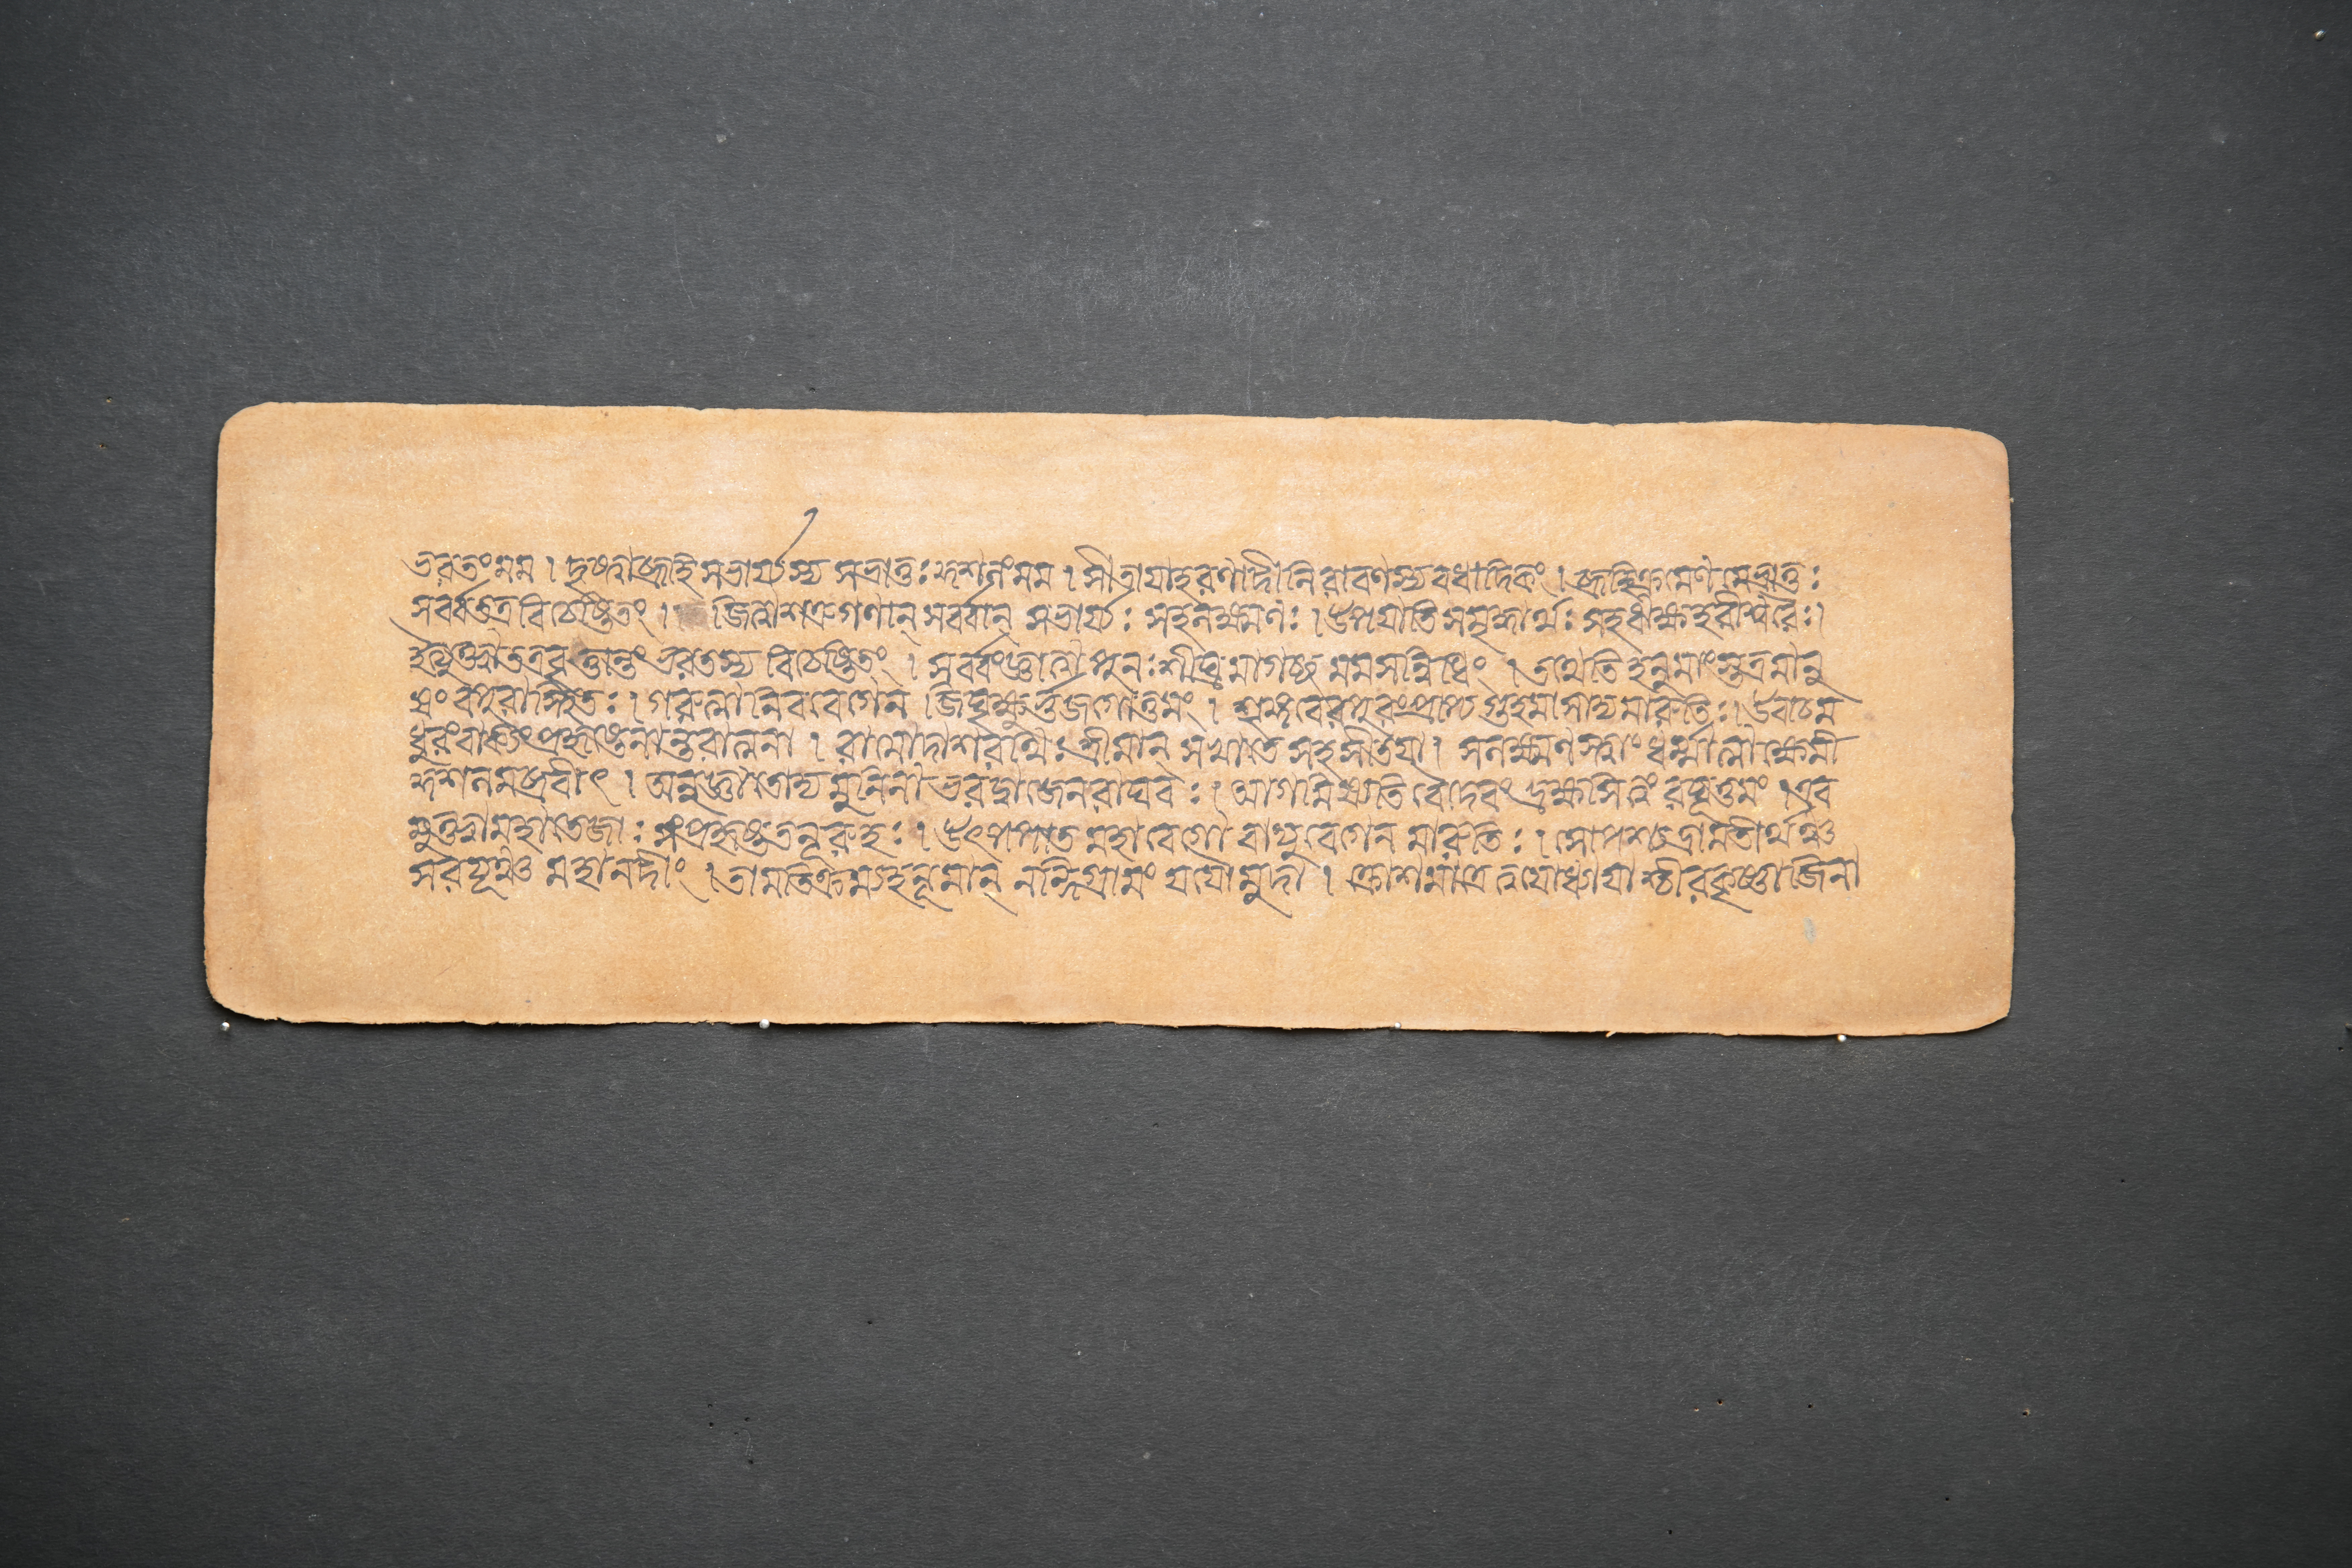 ভরতং মম । দৃষ্ট্বা ব্রূহি সভার্য্যস্য সভ্রাতুঃ কুশলং মম । সীতায়া হরণাদীনি রাবণস্য বধাদিকং । ব্রূহি ক্রমেণ মে ভ্রাতুঃ
সর্ব্বং তত্র বিচেষ্টিতং । জিত্বা শত্রুগণান্ সর্ব্বান্ সভার্য্যঃ সহলক্ষ্মণঃ । উপযাতি সমৃদ্ধার্থঃ সহ ঋক্ষহরীশ্বরৈঃ ।
ইত্যুক্ত্বা তত্র বৃত্তান্তং ভরতস্য বিচেষ্টিতং । সর্ব্বং জ্ঞাত্বা পুনঃ শীঘ্রমাগচ্ছ মম সন্নিধিং । তথেতি হনুমাংস্তত্র মানু
ষং বপুরাস্থিতঃ । গরুত্মানিব বেগেন জিঘৃক্ষুর্ভুজগোত্তমং । শৃঙ্গবেরপুরং প্রাপ্য গুহমাসাদ্য মারুতিঃ । উবাচ ম
ধুরং বাক্যং প্রহৃষ্টেনান্তরাত্মনা । রামো দাশরথিঃ শ্রীমান্ সখা তে সহ সীতয়া । সলক্ষ্মণস্ত্বাং ধর্ম্মাত্মা ক্ষেমী
কুশলমব্রবীৎ । অনুজ্ঞাতোদ্য মুনিনা ভরদ্বাজেন রাঘবঃ । আগমিষ্যতি তং দেবং দ্রক্ষ্যসি ত্বং রঘূত্তমং । এব
মুক্ত্বা মহাতেজাঃ সংপ্রহৃষ্টতনূরুহঃ । উৎপপাত মহাবেগো বায়ুবেগেন মারুতিঃ । সোপশ্যদ্রামতীর্থঞ্চ
সরযূঞ্চ মহানদীং । তামতিক্রম্য হনুমান্ নন্দিগ্রামং যযৌ মুদা । ক্রোশমাত্রে ত্বযোধ্যায়াশ্চীরকৃষ্ণাজিনা